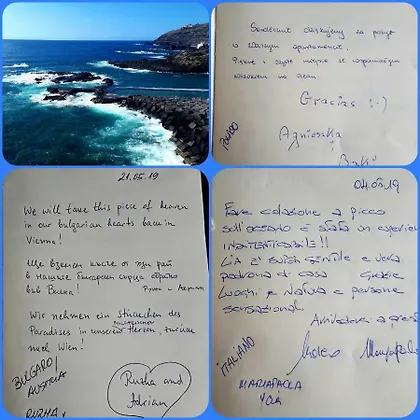 Serdecznie dziękujemy za pobyt
w Waszym apartamencie.
Piękne i czyste miejsce ze wspaniałym
widokiem na ocean
Gracias :-)
Agnieszka
i
POLACO
21.05.19
We will take this piece of heaven
in our bulgarian hearts back in
Vienna!
Ще вземем късче от този рай
в нашите български сърца обратно
във Виена!
Wir nehmen ein Stückchen des
Paradieses in unseren bulgarischen Herzen, zurück
nach Wien!
BULGARO/
AUSTRIA
Ruzha and
Adrian
RUZHA
04.05.19
Fare colazione a picco
sull'oceano è stata un'esperienza
INDIMENTICABILE!!
LIA è super gentile e vera
padrona di casa Grazie
Luoghi e Natura e persone
sensazionali
ITALIANO
MARIAPAOLA